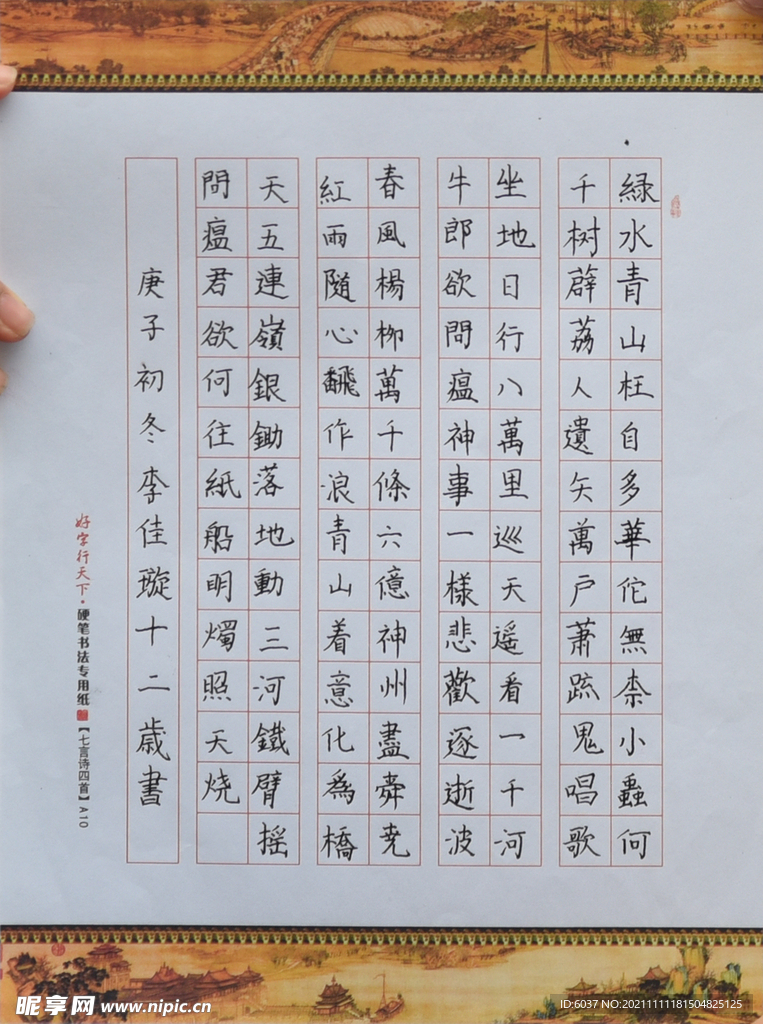 綠水青山枉自多華佗無柰小蟲何
千树薜荔人遺矢萬户蕭疏鬼唱歌
坐地日行八萬里巡天遥看一千河
牛郎欲問瘟神事一樣悲歡逐逝波
春風楊柳萬千條六億神州盡舜尭
紅雨隨心飜作浪青山着意化爲橋
天五連嶺銀鋤落地動三河鐵臂摇
問瘟君欲何往紙船明燭照天烧
庚子初冬李佳璇十二歲書
好字行天下·硬笔书法专用纸【七言诗四首】A10
昵享网 www.nipic.cn
ID:6037 NO:20211111181504825125